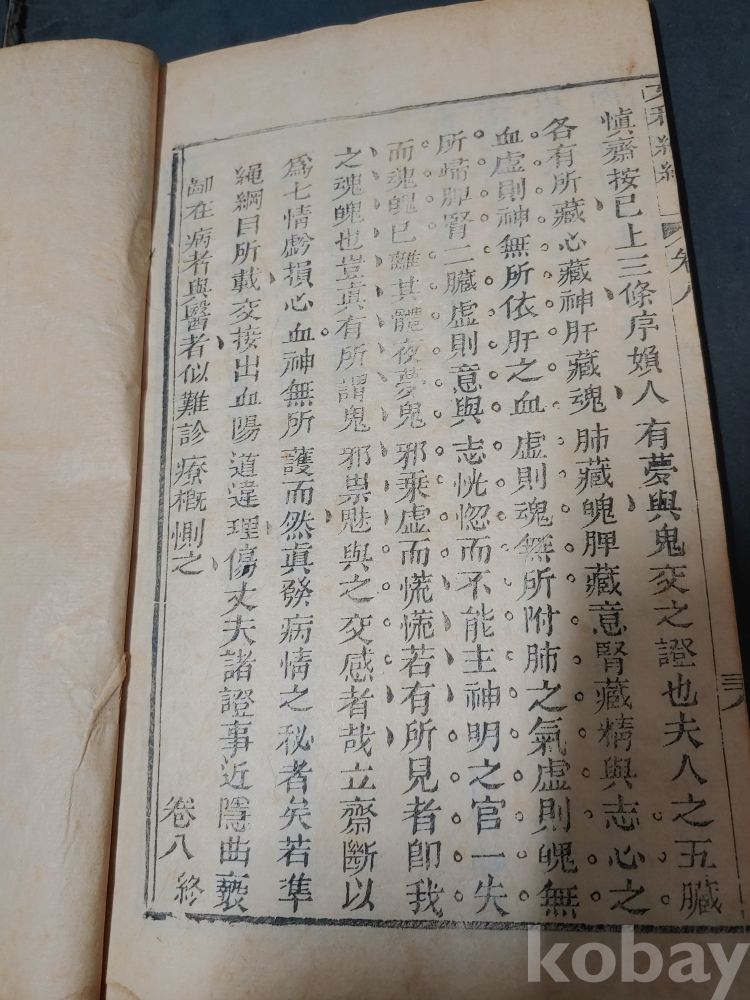 愼齋按已上三條序婦人有夢與鬼交之證也夫人之五臟
各有所藏心藏神肝藏魂肺藏魄脾藏意腎藏精與志心之
血虛則神無所依肝之血虛則魂無所附肺之氣虛則魄無
所歸脾腎二臟虛則意與志恍惚而不能主神明之官一失
而魂魄已離其體夜夢鬼邪乘虛而慌慌若有所見者卽我
之魂魄也豈眞有所謂鬼邪祟魅與之交感者哉立齋斷以
爲七情虧損心血神無所護而然眞發病情之秘者矣若準
繩綱目所載交接出血陽道違理傷丈夫諸證事近隱曲褻
鄙在病者與醫者似難診療槪惻之
卷八終
卷八
kobay